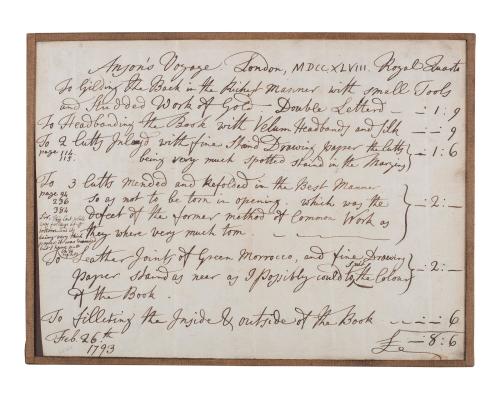 Anson's Voyage. London, MDCCXLVIII. Royal Quarto
To Gilding The Back in the Richest Manner with small Tools
and Studded Work of Gold — Double Letterd — — : 1 : 9
To Headbanding the Book with Velum Headbands and Silk — — : — : 9
To 2 Cutts Inlayd with fine Stain'd Drawing paper the Cutts
page 114
115.
being very much spotted & stain'd in the Margins — : 1 : 6
To 3 Cutts Mended and Refolded in the Best Manner
page 94
236
384
so as not to be torn in opening. which was the
defect of the former method of Common Work as
they where very much torn. — : 2 : —
To Leather Joints of Green Morrocco, and fine Drawing
Paper stain'd as near as I Possibly could to the Colour
of the Book. — : 2 : —
To filletting the Inside & outside of the Book — : — : 6
Feb. 26th
1793
£ — 8 : 6